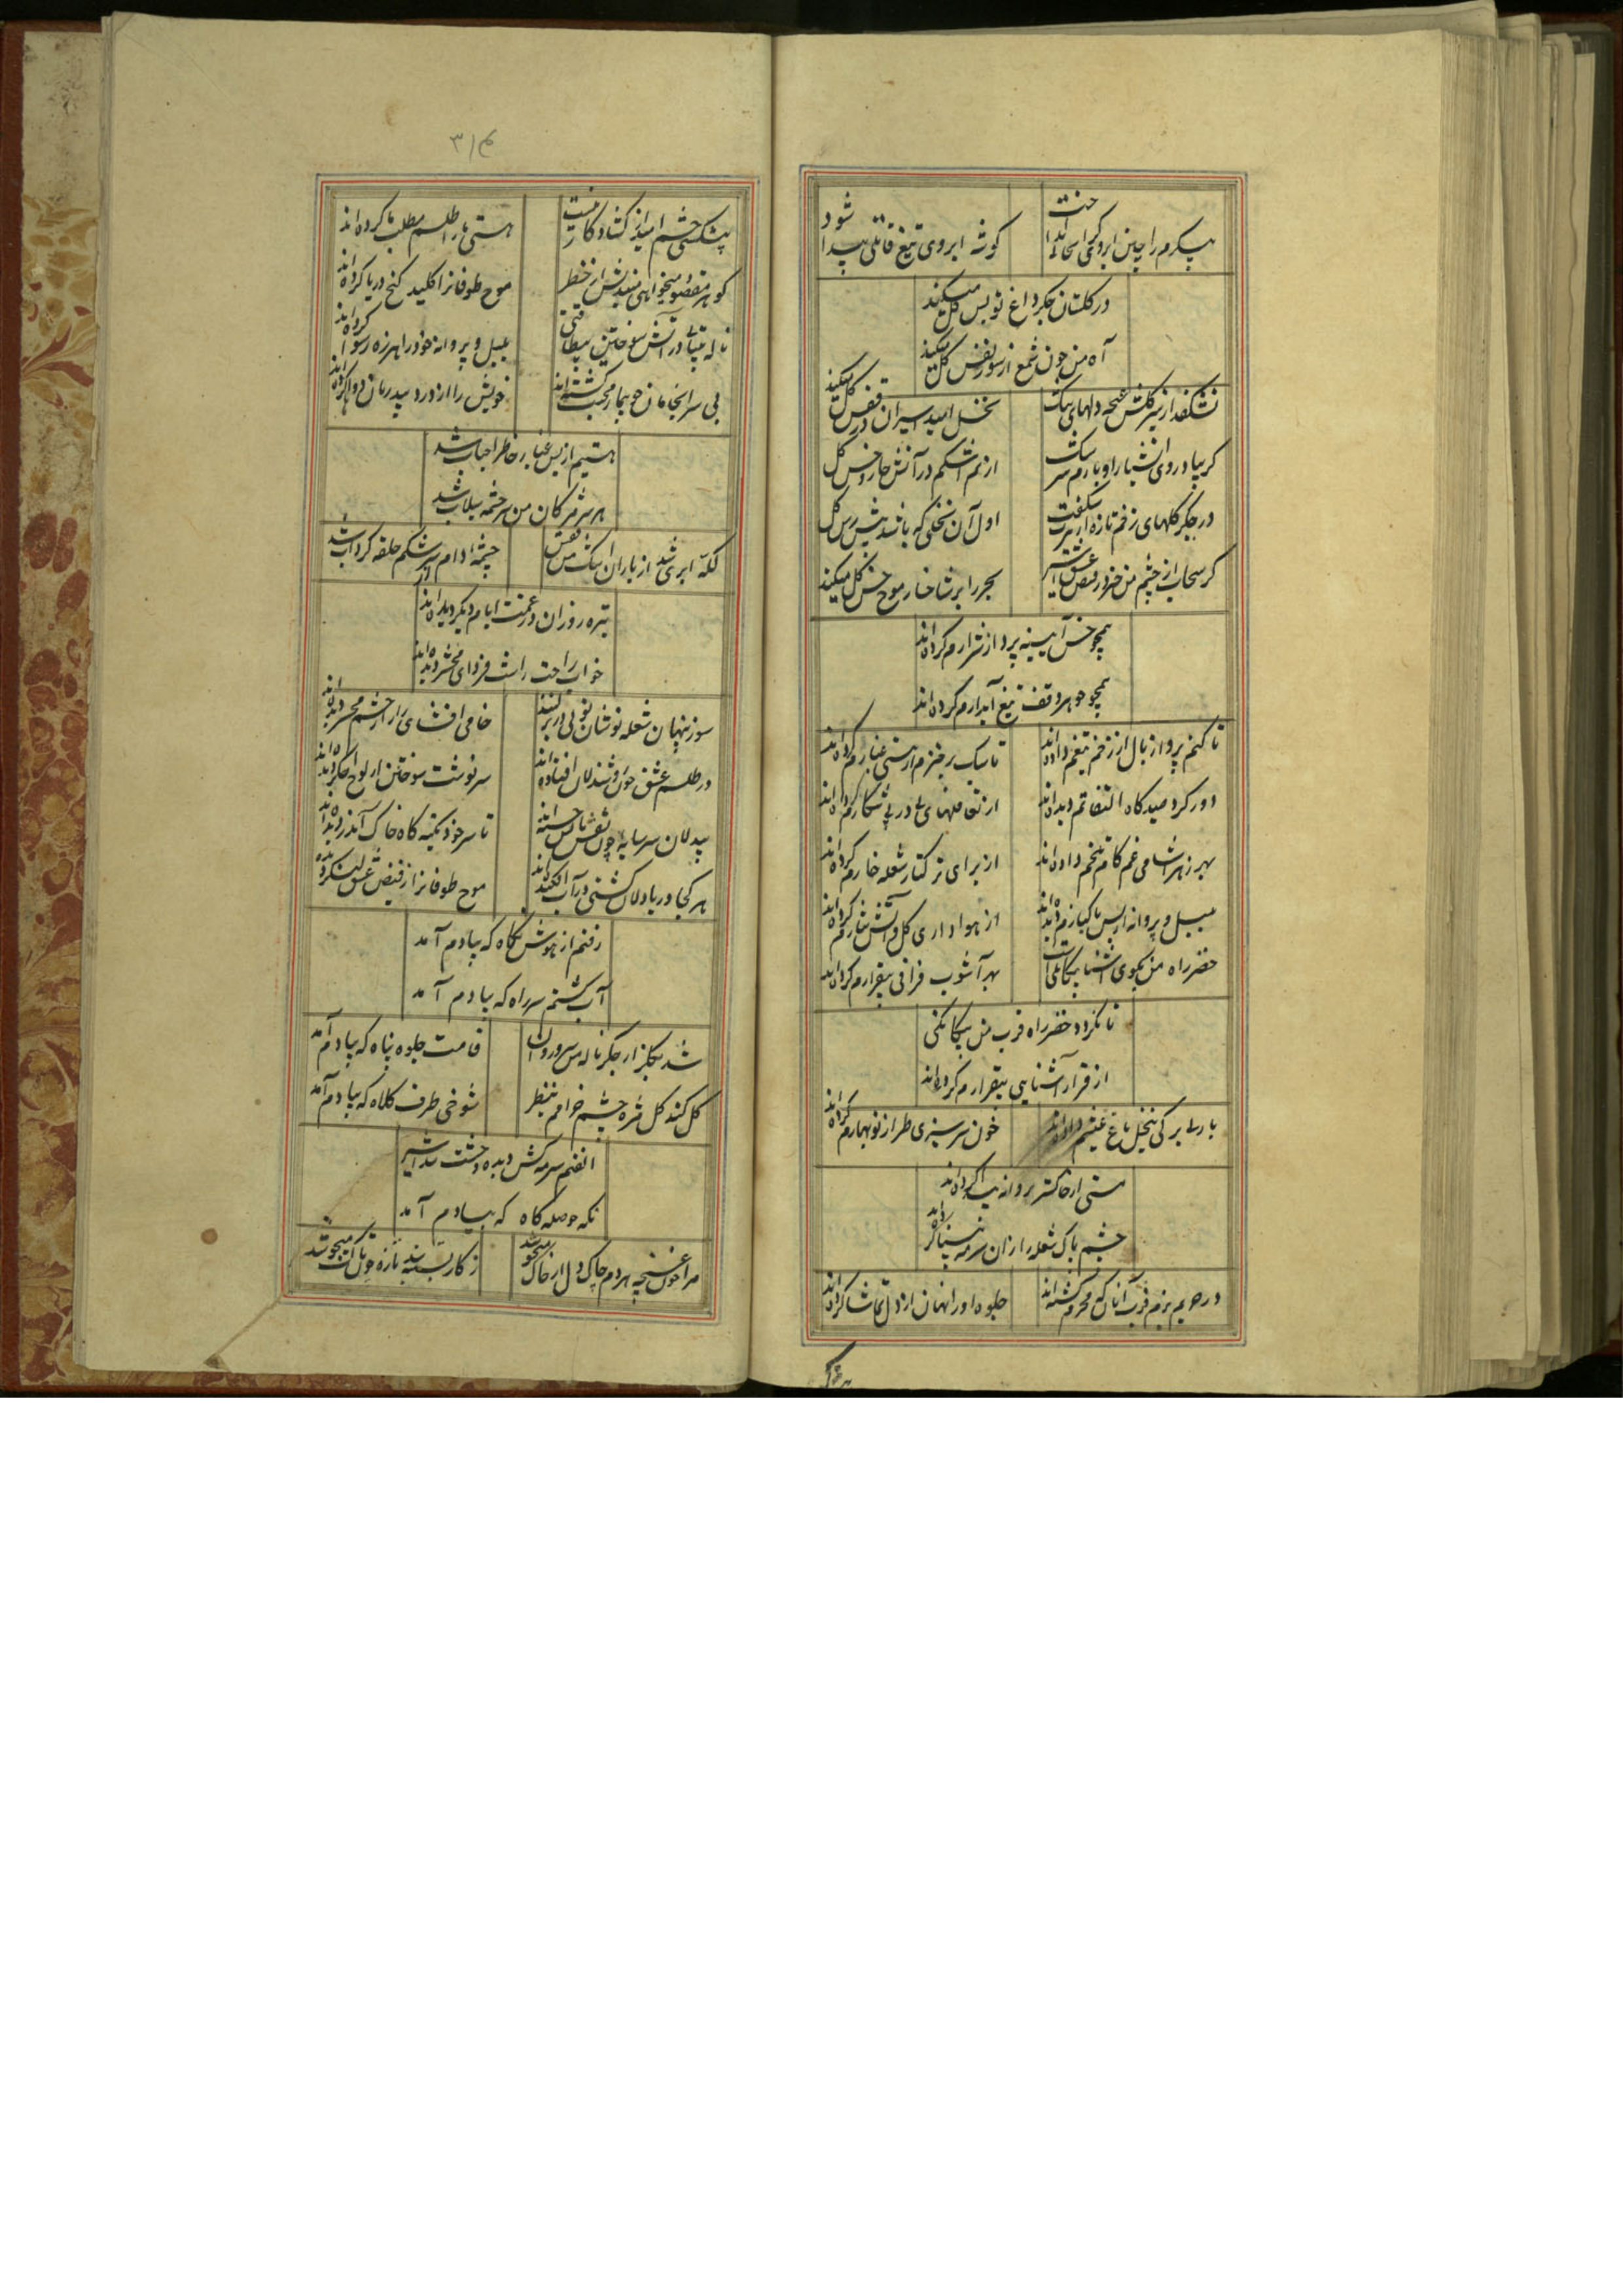 پیکرم را چین ابروی
گوشه ابروی تیغ قاتلی پیدا شود
در گلستان جگر داغ تو بس گل میکند
آه من چون شمع از سوز نفس گل میکند
نشکفد از سیر گلشن غنچه دلهای
نخل امید اسیران در قفس گل میکند
از نم اشکم در آتش خار و خس گل
در جگر گلهای زخم تازه از تیرت شکفت
اول آن نخلی که باشد پیش رس گل
گر سحاب از چشم من خیزد ز فیض عشق اسیر
بحر را بر شاخسار موج خس گل میکند
همچو خس آیینه پرداز شرارم کرده‌اند
همچو جوهر وقف تیغ آبدارم کرده‌اند
تا کنم پرواز بال از زخم تیغم داده‌اند
تا سبک رفتم از هستی غبارم کرده‌اند
دور گرد صیدگاه التفاتم دیده‌اند
از تغافلهای در پی شکارم کرده‌اند
بهر زهرآشامی غم کام تلخم داده‌اند
از برای ترکتاز شعله خارم کرده‌اند
بلبل و پروانه از بس پاکبازم دیده‌اند
از هواداری گل و آتش نثارم کرده‌اند
خضر راه من بکوی آشنا بیگانگی است
بهر آشوب فراقی بیقرارم کرده‌اند
تا نگردد خضر راه قرب من بیگانگی
از قرار آشنایی بیقرارم کرده‌اند
بار بی برگی بنخل باغ عیشم داده‌اند
خون سرسبزی طراز نوبهارم کرده‌اند
مستی از خاکستر پروانه پیدا کرده‌اند
چشم پاک شعله را زان سرمه بینا کرده‌اند
در حریم بزم قرب آنان که محرم گشته‌اند
جلوه او را نهان از دل تماشا کرده‌اند
۳۱۴
هستی ما را طلسم مطلب ما کرده‌اند
گوهر مقصود میخواهی میندیش از خطر
موج طوفانرا کلید گنج دریا کرده‌اند
ناله بیتابی در آتش سوختن بیطاقتی
بلبل و پروانه خود را هرزه رسوا کرده‌اند
بی سرانجامان چو بیمار محبت گشته‌اند
خویش را از درد بیدرمان دوا کرده‌اند
هستیم از بس غبار خاطر احباب شد
هر سر مژگان من سرچشمه سیلاب شد
لکه ابری شد از باران اشک من قفس
چشمه دام سرشکم حلقه گرداب شد
تیره روزان در غمت ایام دیگر دیده‌اند
خواب راحت را شب فردای محشر دیده‌اند
سوز پنهان شعله نوشان
خامی افشای راز از چشم مجمر دیده‌اند
در طلسم عشق خوش اندلان افتاده‌اند
سرنوشت سوختن از لوح اخگر دیده‌اند
بیدلان سرمایه چون نقش نفس
تا سر خود تکیه گاه خاک آن در دیده‌اند
هر کجا دریادلان کشتی در آب افکنده‌اند
موج طوفانرا ز فیض عشق لنگر دیده‌اند
رفتم از هوش نگاه که بیادم آمد
آب گشتم سر راه که بیادم آمد
شد گلزار جگر ناله من سرو روان
قامت جلوه پناه که بیادم آمد
گل کند گل مژه چشم خرامم بنظر
شوخی طرف کلاه که بیادم آمد
نفسم سرمه کش دیده وحشت شد اسیر
نگه حوصله کاه که بیادم آمد
مرا چون غنچه هر دم چاک دل از خاک میجوشد
ز کار بسته بند تازه چون تاک میجوشد